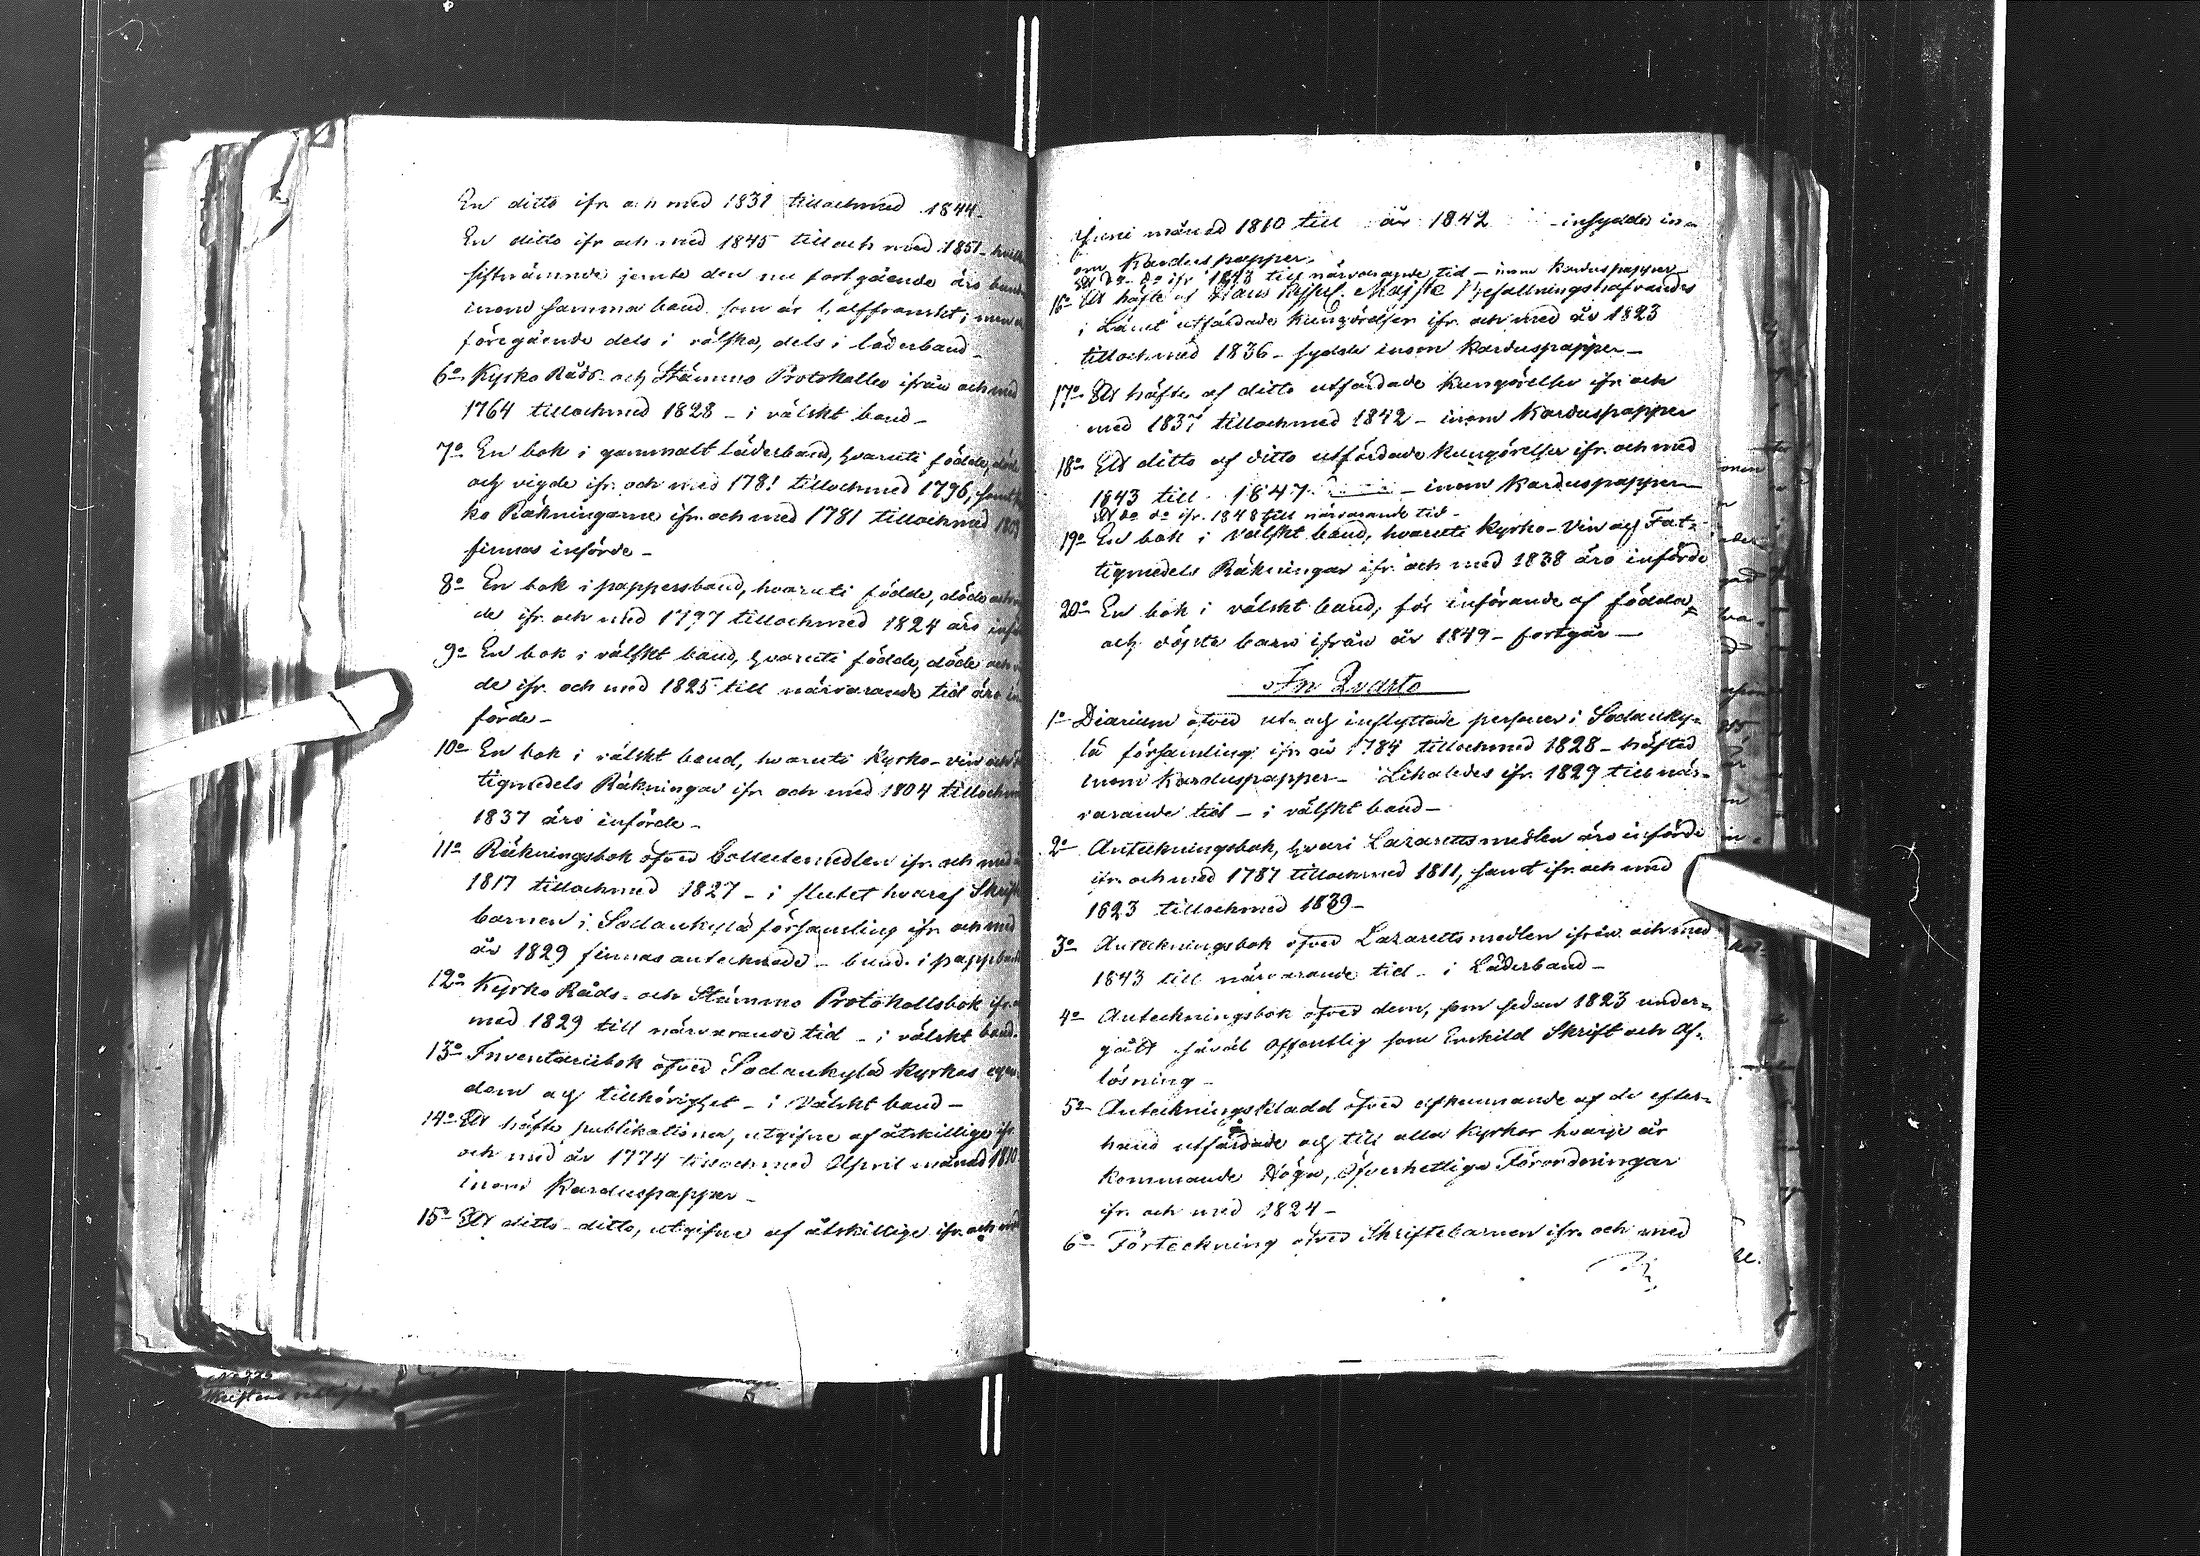 En ditto ifr. och med 1831 tilloch med 1844
En ditto ifr och med 1845 till och med 1851
sistnämnde jemte den nu fortgående äro
inom samma band som är halffranskt;
föregående dels i välska, dels i läderband
6o Kyrko Råds och Stämmo Protokoller ifrån och med
1764 tilloch med 1828 – i välskt band –
7o En bok i gammalt läderband, hvaruti födde,
och vigde ifr. och med 1781 tilloch med 1796,
ko Räkningarne ifr. och med 1781 tilloch med
finnas införde –
8o En bok i pappersband, hvaruti födde, döde och
de ifr. och med 1797 tilloch med 1824 äro
9o En bok i välskt band, hvaruti födde, döde och
de ifr. och med 1825 till närvarande tid äro in
förde –
10o En bok i välskt band, hvaruti Kyrko – vin och
tigmedels Räkningar ifr. och med 1804 tilloch
1837 äro införde –
11o Räkningsbok öfver Collectemedlen ifr. och med
1817 tilloch med 1827 – i slutet hvaraf Skrift
barnen i Sodankylä församling ifr och med
år 1829 finnas antecknade – bund. i
12o Kyrko Råds- och Stämmo Protokollsbok ifr.
med 1829 till närvarande tid – i välskt band.
13o Inventariibok öfver Sodankylä Kyrkas egen
dom och tillhörighet – i Välskt band –
14o Ett häfte publikationer, utgifne af åtskillige ifr
och med år 1774 tilloch med April månad 1810
inom Karduspapper –
15o Ett ditto ditto, utgifne af åtskillige ifr. och med
Juni månad 1810 till år 1842 insydde in
om Karduspapper.
Ett do do ifr 1843 till närvarande tid – inom Karduspapper
16o Ett häfte af Hans Kejserl. Majsts Befallningshafvandes
i Länet utfärdade Kungörelser ifr. och med år 1823
tilloch med 1836 – sydda inom Karduspapper –
17o Ett häfte af ditto utfärdade Kungörelser ifr. och
med 1837 tilloch med 1842 – inom Karduspapper
18o Ett ditto af ditto utfärdade Kungörelser ifr. och med
1843 till 1847 – inom Karduspapper
Ett do do ifr. 1848 till närvarande tid –
19o En bok i Välskt band, hvaruti Kyrko – Vin och Fat-
tigmedels Räkningar ifr. och med 1838 äro införde
20o En bok i välskt band, för införande af födda
och döpta barn ifrån år 1849 – fortgår –
In Qvarto
1o Diarium öfver ut- och inflyttade personer i Sodanky-
lä församling ifr. år 1784 tilloch med 1828 – häftad
inom Karduspapper – Likaledes ifr. 1829 till när-
varande tid – i välskt band –
2o Anteckningsbok, hvari Lazarettsmedlen äro införde
ifr. och med 1787 tilloch med 1811, samt ifr. och med
1823 tilloch med 1839 –
3o Anteckningsbok öfver Lazarettsmedlen ifrån och med
1843 till närvarande tid – i Läderband –
4o Anteckningsbok öfver dem, som sedan 1823 under-
gått såväl Offentlig som Enskild Skrift och Af-
lösning –
5o Anteckningskladd öfver afkunnande af de efter-
hand utfärdade och till alla Kyrkor hvarje år
kommande Höga, Öfverhetliga Förordningar
ifr. och med 1824 –
6o Förteckning öfver Skriftebarnen ifr. och med